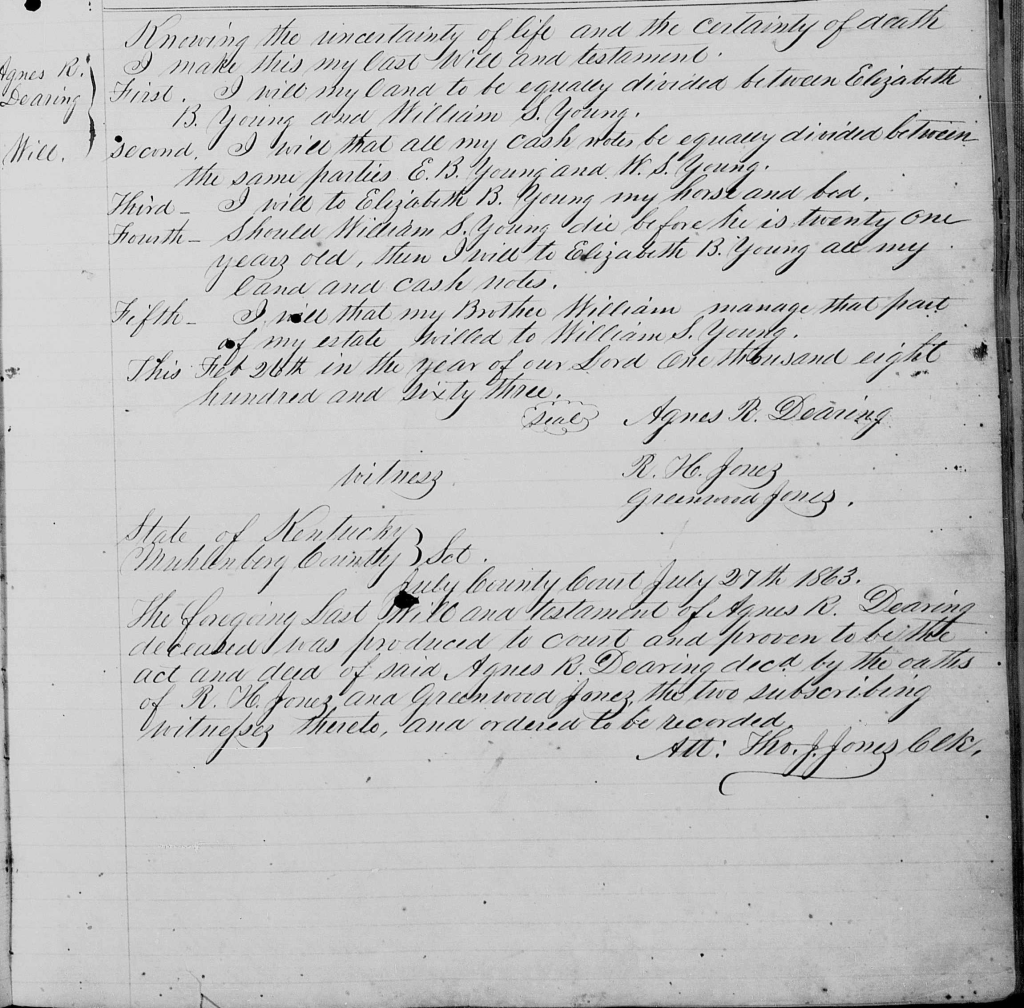 Agnes R.
Dearing
Will.
Knowing the uncertainty of life and the certainty of death
I make this my last Will and testament.
First. I will my land to be equally divided between Elizabeth
B. Young and William S. Young.
Second. I will that all my cash notes be equally divided between
the same parties E. B. Young and W. S. Young.
Third - I will to Elizabeth B. Young my horse and bed.
Fourth - Should William S. Young die before he is twenty one
years old, then I will to Elizabeth B. Young all my
land and cash notes.
Fifth - I will that my Brother William manage that part
of my estate willed to William S. Young.
This Feb 26th in the year of our Lord One thousand eight
hundred and sixty three.
Seal Agnes R. Dearing
Witness R. H. Jones
Greenwood Jones.
State of Kentucky
Muhlenberg County } Sct.
July County Court July 27th 1863.
The foregoing Last Will and testament of Agnes R. Dearing
deceased was produced to court and proven to be the
act and deed of said Agnes R. Dearing decd. by the oaths
of R. H. Jones and Greenwood Jones the two subscribing
witnesses thereto, and ordered to be recorded,
Att: Tho. J. Jones Clk.